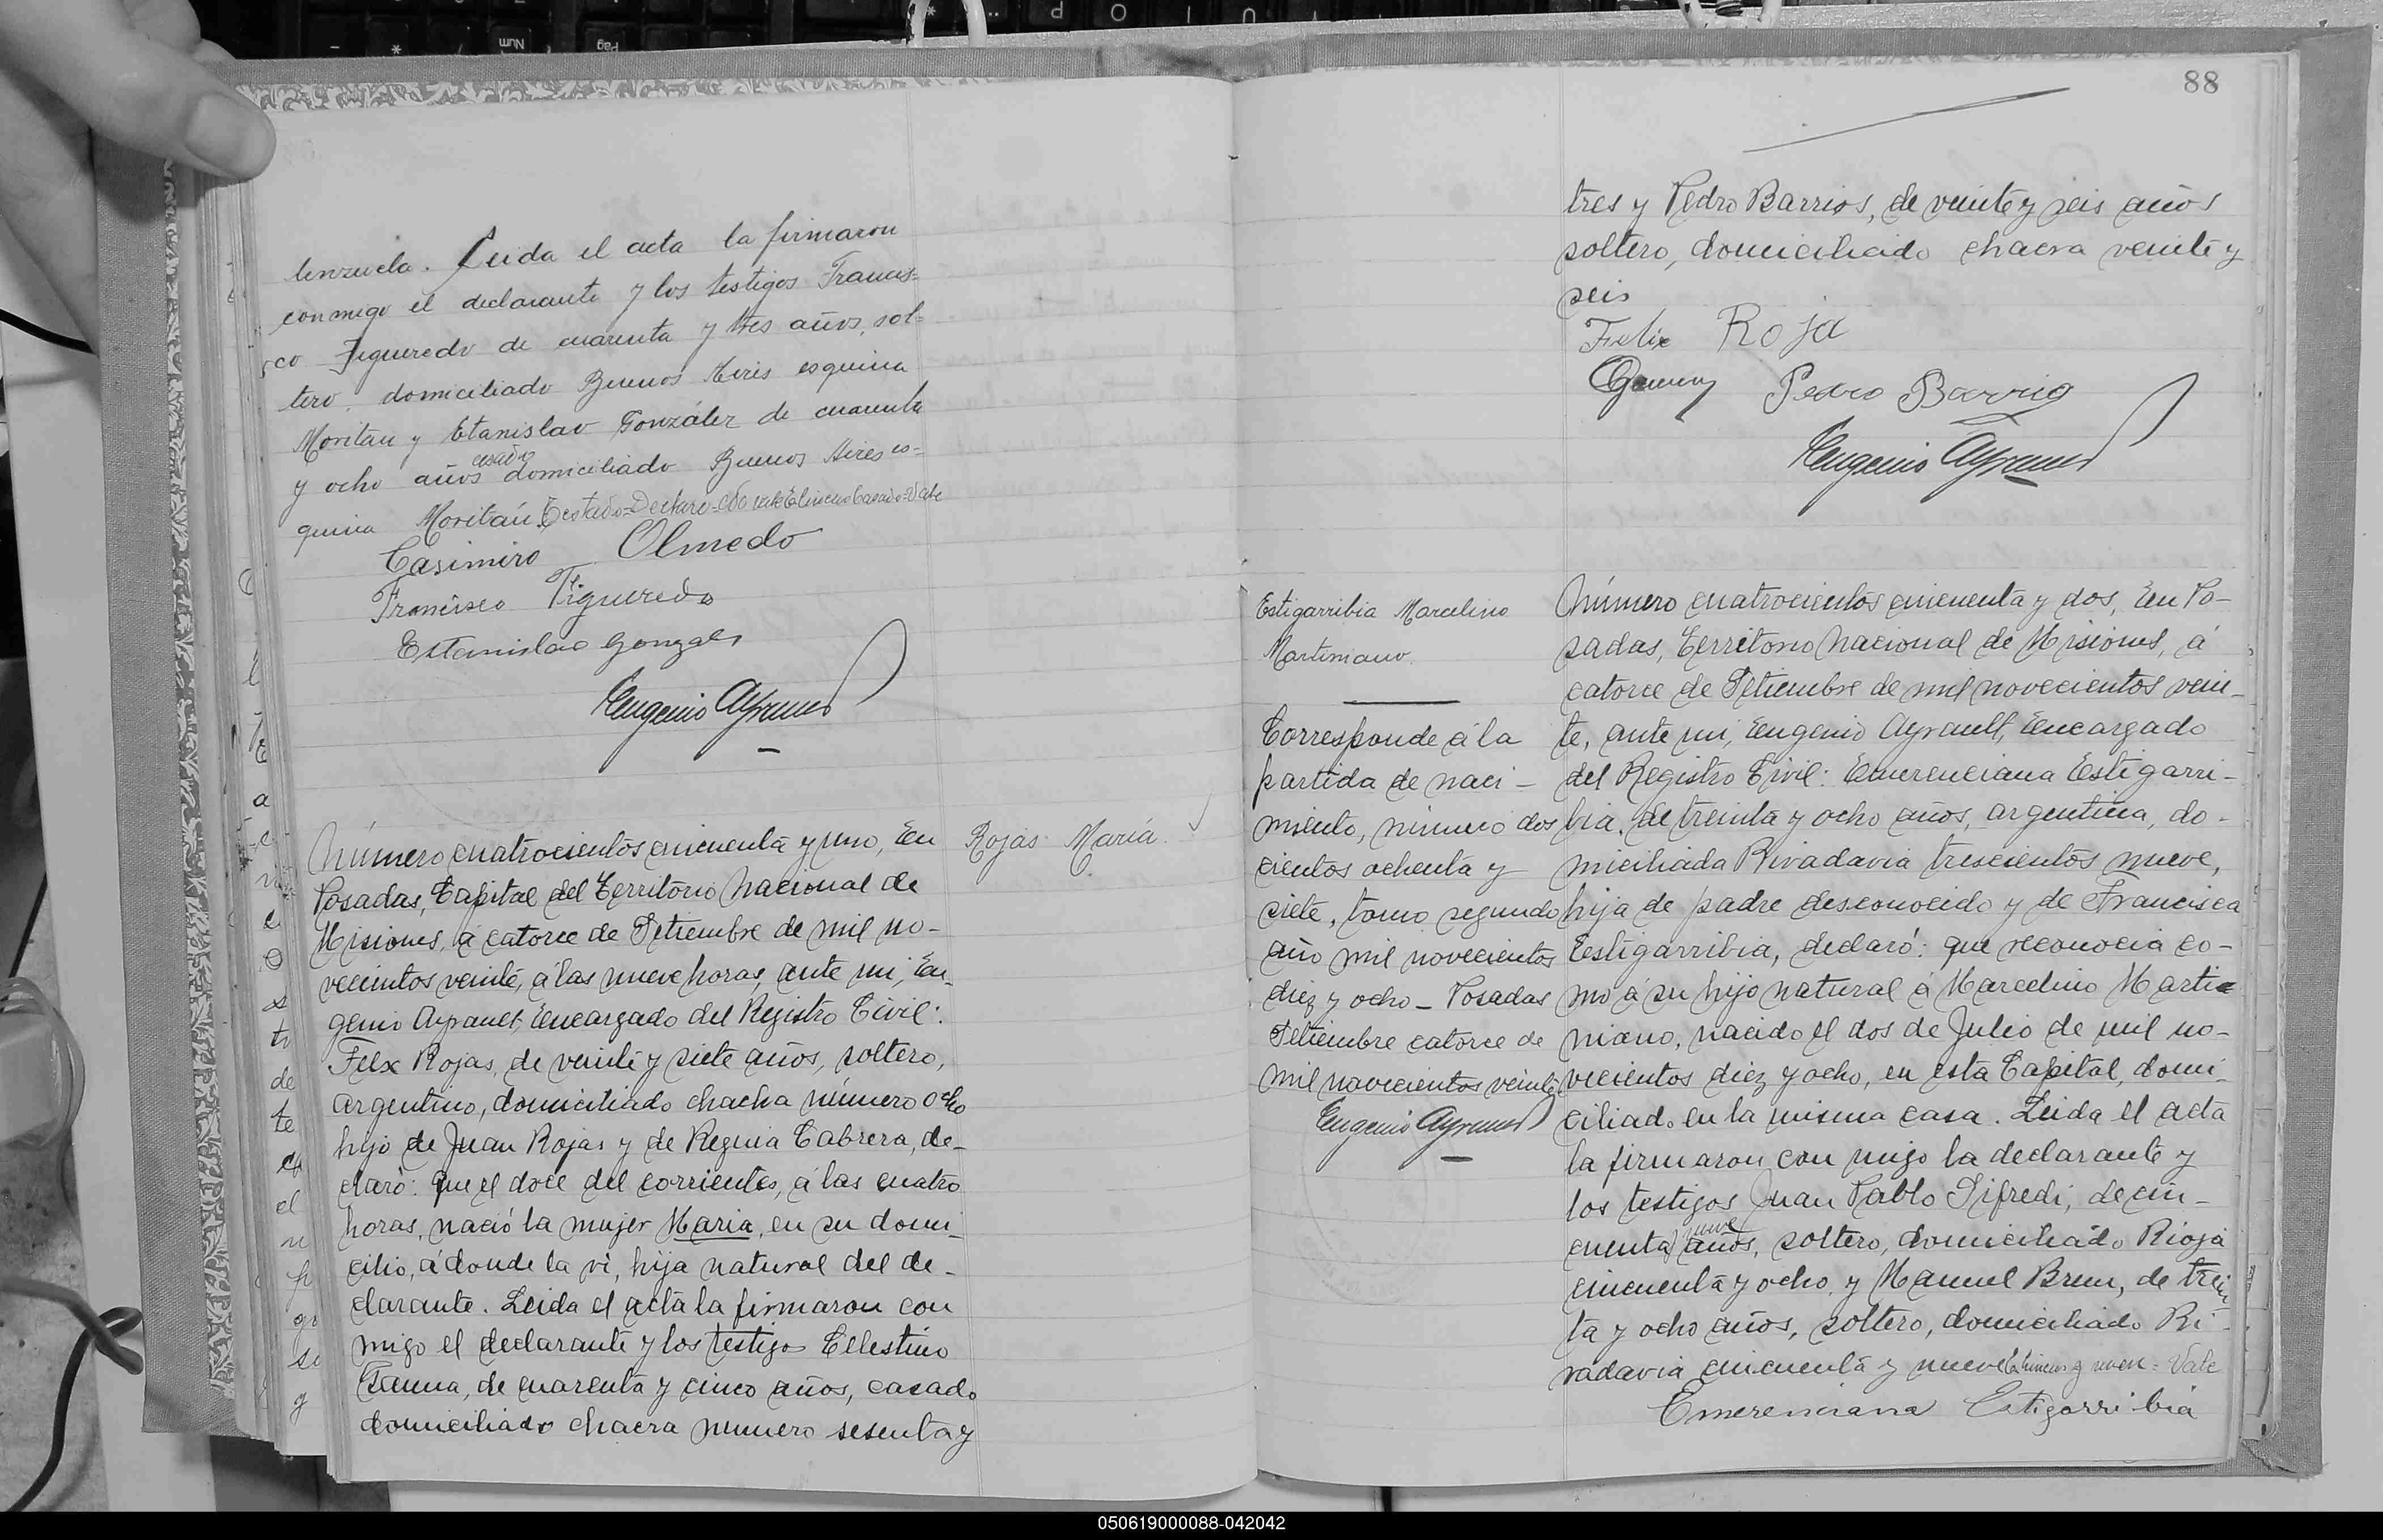 lenzuela. Leida el acta la firmaron
conmigo el declarante y los testigos Francis=
co Figueredo de cuarenta y tres años, sol=
tero, domiciliado Buenos Aires esquina
Moritan y Etanislao González de cuarenta
casado
y ocho años domiciliado Buenos Aires es=
quina Moritán.
Casimiro Olmedo
Francisco Figueredo
Estanislao Gonzales
Eugenio Ayrault
Número cuatrocientos cincuenta y uno, En
Posadas, Capital del Territorio Nacional de
Misiones, á catorce de Setiembre de mil no-
vecientos veinte, á las nueve horas, ante mi, Eu-
genio Ayrault, Encargado del Registro Civil:
Felix Rojas, de veinte y siete años, soltero,
argentino, domiciliado chacha número ocho
hijo de Juan Rojas y de Regina Cabrera, de-
claró: que el doce del corrientes, á las cuatro
horas, nació la mujer Maria, en su domi-
cilio, á donde la vi, hija natural del de-
clarante. Leida el acta la firmaron con
migo el declarante y los testigos Cellestino
de cuarenta y cinco años, casado
domiciliado chacra numero sesenta y
Rojas María.
88
tres y Pedro Barrios, de veinte y seis años
soltero, domiciliado chacra veinte y
seis
Felix Roja
Pedro Barrio
Eugenio Ayrault
Estigarribia Marcelino
Martiniano.
Corresponde á la
partida de naci-
miento, número dos
cientos ochenta y
siete, tomo segundo
año mil novecientos
diez y ocho - Posadas
Setiembre catorce de
mil novecientos veinte
Eugenio Ayrault
Número cuatrocientos cincuenta y dos, En Po-
sadas, Territorio Nacional de Misiones, á
catorce de Setiembre de mil novecientos vein-
te, ante mi, Eugenio Ayrault, Encargado
del Registro Civil: Emerenciana Estigarri-
bia, de treinta y ocho años, argentina, do-
miciliada Rivadavia trescientos nueve,
hija de padre desconocido y de Francisca
Estigarribia, declaró: que reconocia co-
mo á su hijo natural á Marcelino Marti
niano, nacido el dos de Julio de mil no-
vecientos diez y ocho, en esta Capital, domi-
ciliado en la misma casa. Leida el acta
la firmaron con migo la declarante y
los testigos Juan Pablo Sifredi, de cin-
y nueve
cuenta años, soltero, domiciliado Rioja
cincuenta y ocho, y Manuel Brun, de trein
ta y ocho años, soltero, domiciliado Ri-
vadavia cincuenta y nueve Vale
Emerenciana Estigarribia
050619000088-042042